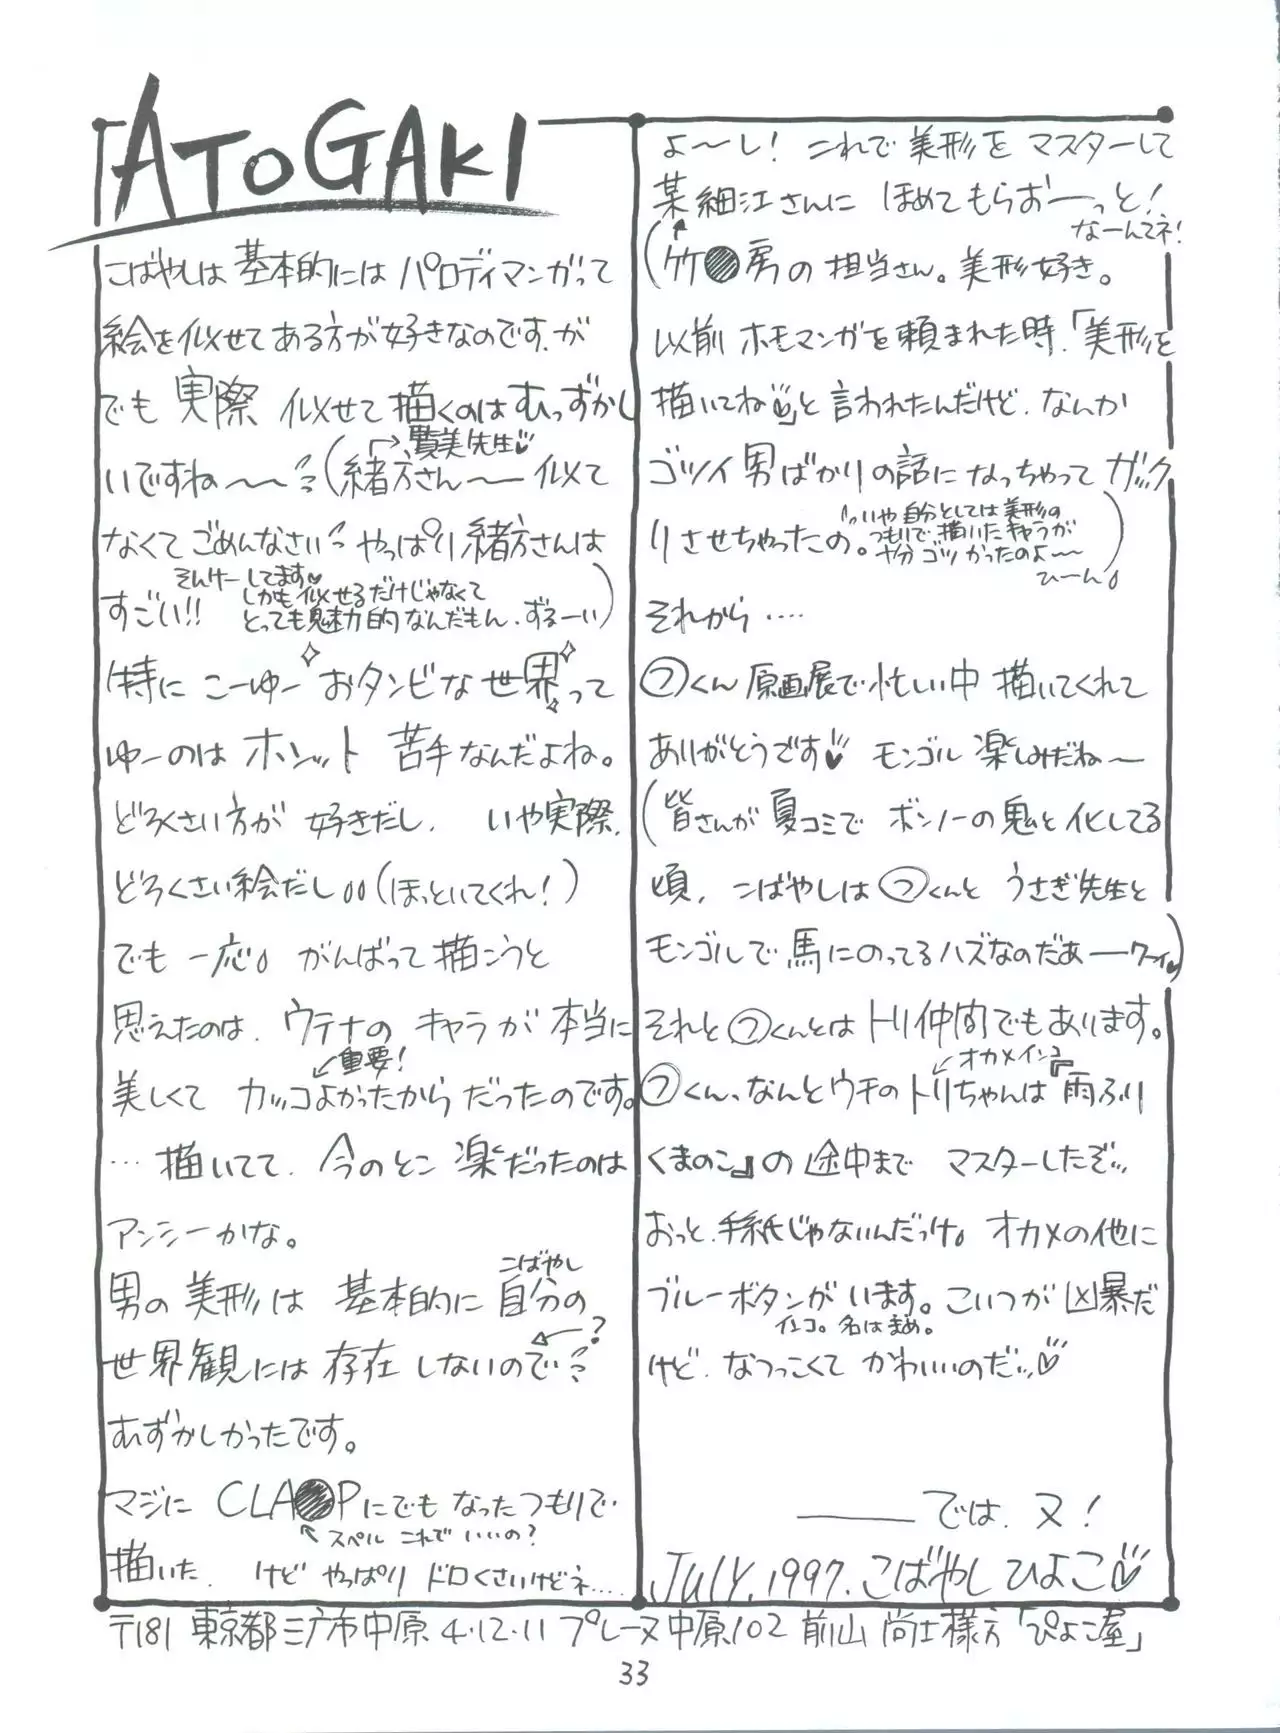 ATOGAKI
こばやしは基本的にはパロディマンガって
絵を似せてある方が好きなのです.が
でも 実際 似せて描くのはむっずかし
いですね〜〜(緒方さん〜〜似て
→賢美先生
なくてごめんなさい やっぱり緒方さんは
すごい!!
そんけーしてます
しかも似せるだけじゃなくて
とっても魅力的なんだもん.ずるーい)
特に こーゆー おタンビな世界って
ゆーのは ホンット 苦手なんだよね。
どろくさい方が 好きだし. いや実際.
どろくさい絵だし(ほっといてくれ!)
でも 一応。 がんばって描こうと
思えたのは. ウテナの キャラが 本当に
美しくて カッコよかったからだったのです。
重要!
…描いてて. 今のとこ 楽だったのは
アンシーかな。
男の美形は 基本的に 自分の
こばやし
世界観には 存在 しないので
←?
むずかしかったです。
マジに CLA●Pにでもなったつもりで.
スペル これで いいの?
描いた. けど やっぱり ドロくさいけどネ....
よ〜し! これで美形をマスターして
某細江さんに ほめてもらおーーっと!
なーんてネ!
(竹●房の 担当さん。美形好き。
以前 ホモマンガを頼まれた時.「美形を
描いてね」と 言われたんだけど. なんか
ゴツイ男ばかりの話に なっちゃって ガック
リさせちゃったの。
いや自分としては美形の
つもりで描いたキャラが
十分ゴツかったのよ〜〜
ひーん。)
それから ‥‥
㋫くん 原画展で忙しい中 描いてくれて
ありがとうです モンゴル 楽しみだね〜
(皆さんが 夏コミで ボンノーの鬼と化してる
頃. こばやしは ㋫くんと うさぎ先生と
モンゴルで 馬にのってるハズなのだあーーワーイ)
それと ㋫くんとは トリ仲間でもあります。
㋫くん、なんとウチの トリちゃんは『雨ふり
オカメインコ
くまのこ』の 途中まで マスターしたぞ
おっと.手紙じゃないんだっけ。オカメの他に
ブルーボタンが います。こいつが 凶暴だ
インコ。名はまめ。
けど. なつっこくて かわいいのだ
では. 又!
JULY.1997. こばやし ひよこ
〒181 東京都三鷹市中原 4・12・11 プレーヌ中原102 前山 尚士様方「ぴよこ屋」
33